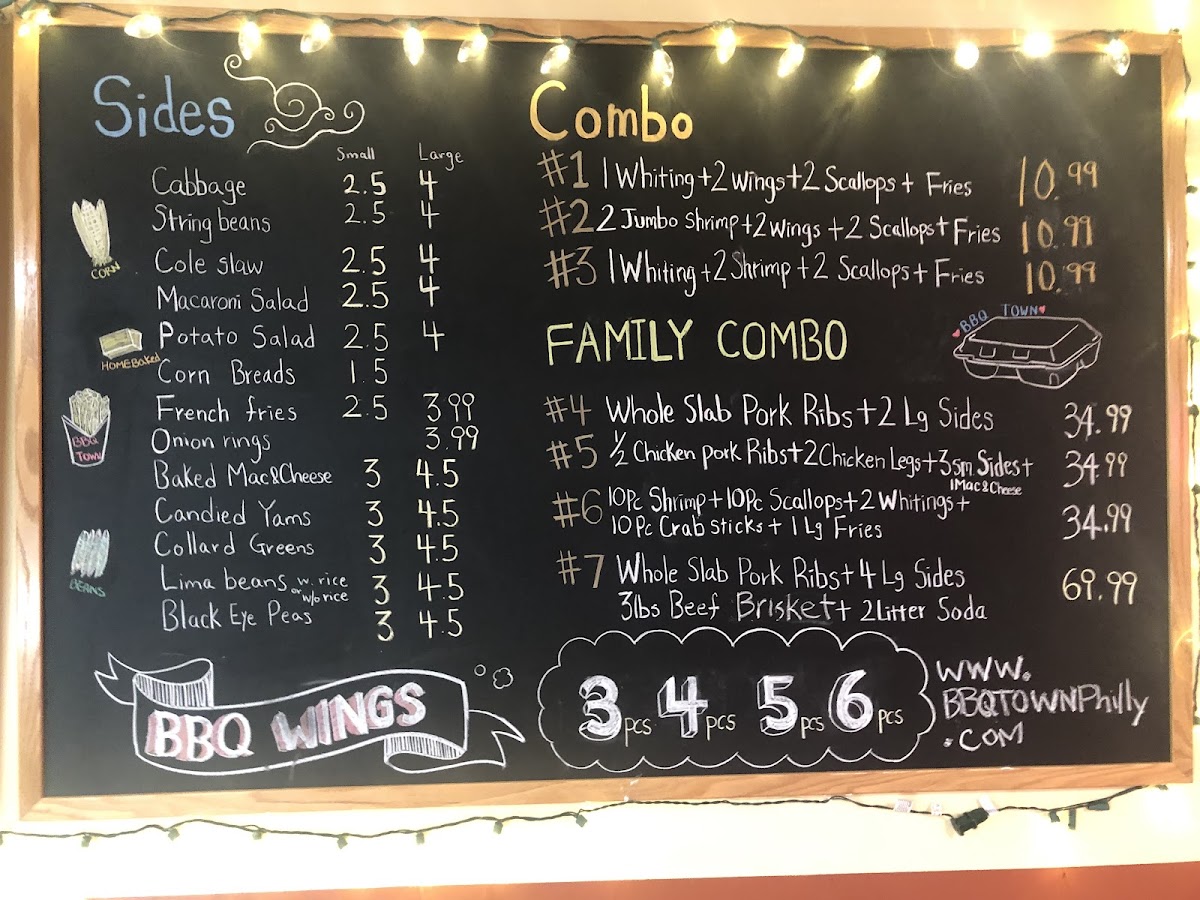 Sides
Small Large
Cabbage 2.5 4
String beans 2.5 4
Cole slaw 2.5 4
Macaroni Salad 2.5 4
Potato Salad 2.5 4
Corn Breads 1.5
French fries 2.5 3.99
Onion rings 3.99
Baked Mac&Cheese 3 4.5
Candied Yams 3 4.5
Collard Greens 3 4.5
Lima beans w. rice or w/o rice 3 4.5
Black Eye Peas 3 4.5
CORN
HOMEBaked
BBQ
TOWN
BEANS
BBQ WINGS
Combo
#1 1 Whiting+2 wings+2 Scallops+ Fries 10.99
#2 2 Jumbo Shrimp+2 wings +2 Scallops+ Fries 10.99
#3 1 Whiting+2 Shrimp+2 Scallops+ Fries 10.99
FAMILY COMBO
BBQ TOWN
#4 Whole Slab Pork Ribs+2 Lg Sides 34.99
#5 1/2 Chicken Pork Ribs+2 Chicken Legs+3 sm Sides+ 34.99
1 Mac&Cheese
#6 10Pc Shrimp+10Pc Scallops+2 Whitings+
10Pc Crab sticks+ 1 Lg Fries 34.99
#7 Whole Slab Pork Ribs+4 Lg Sides 69.99
3lbs Beef Brisket+ 2 Litter Soda
3 pcs 4 pcs 5 pcs 6 pcs
www.
BBQTOWNPhilly
.COM